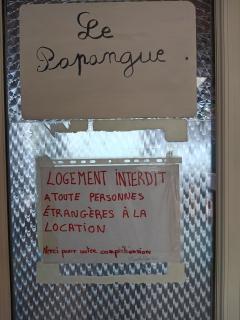 Le
Papangue.
LOGEMENT INTERDIT
ATOUTE PERSONNES
ÉTRANGÈRES À LA
LOCATION
Merci pour votre compréhension